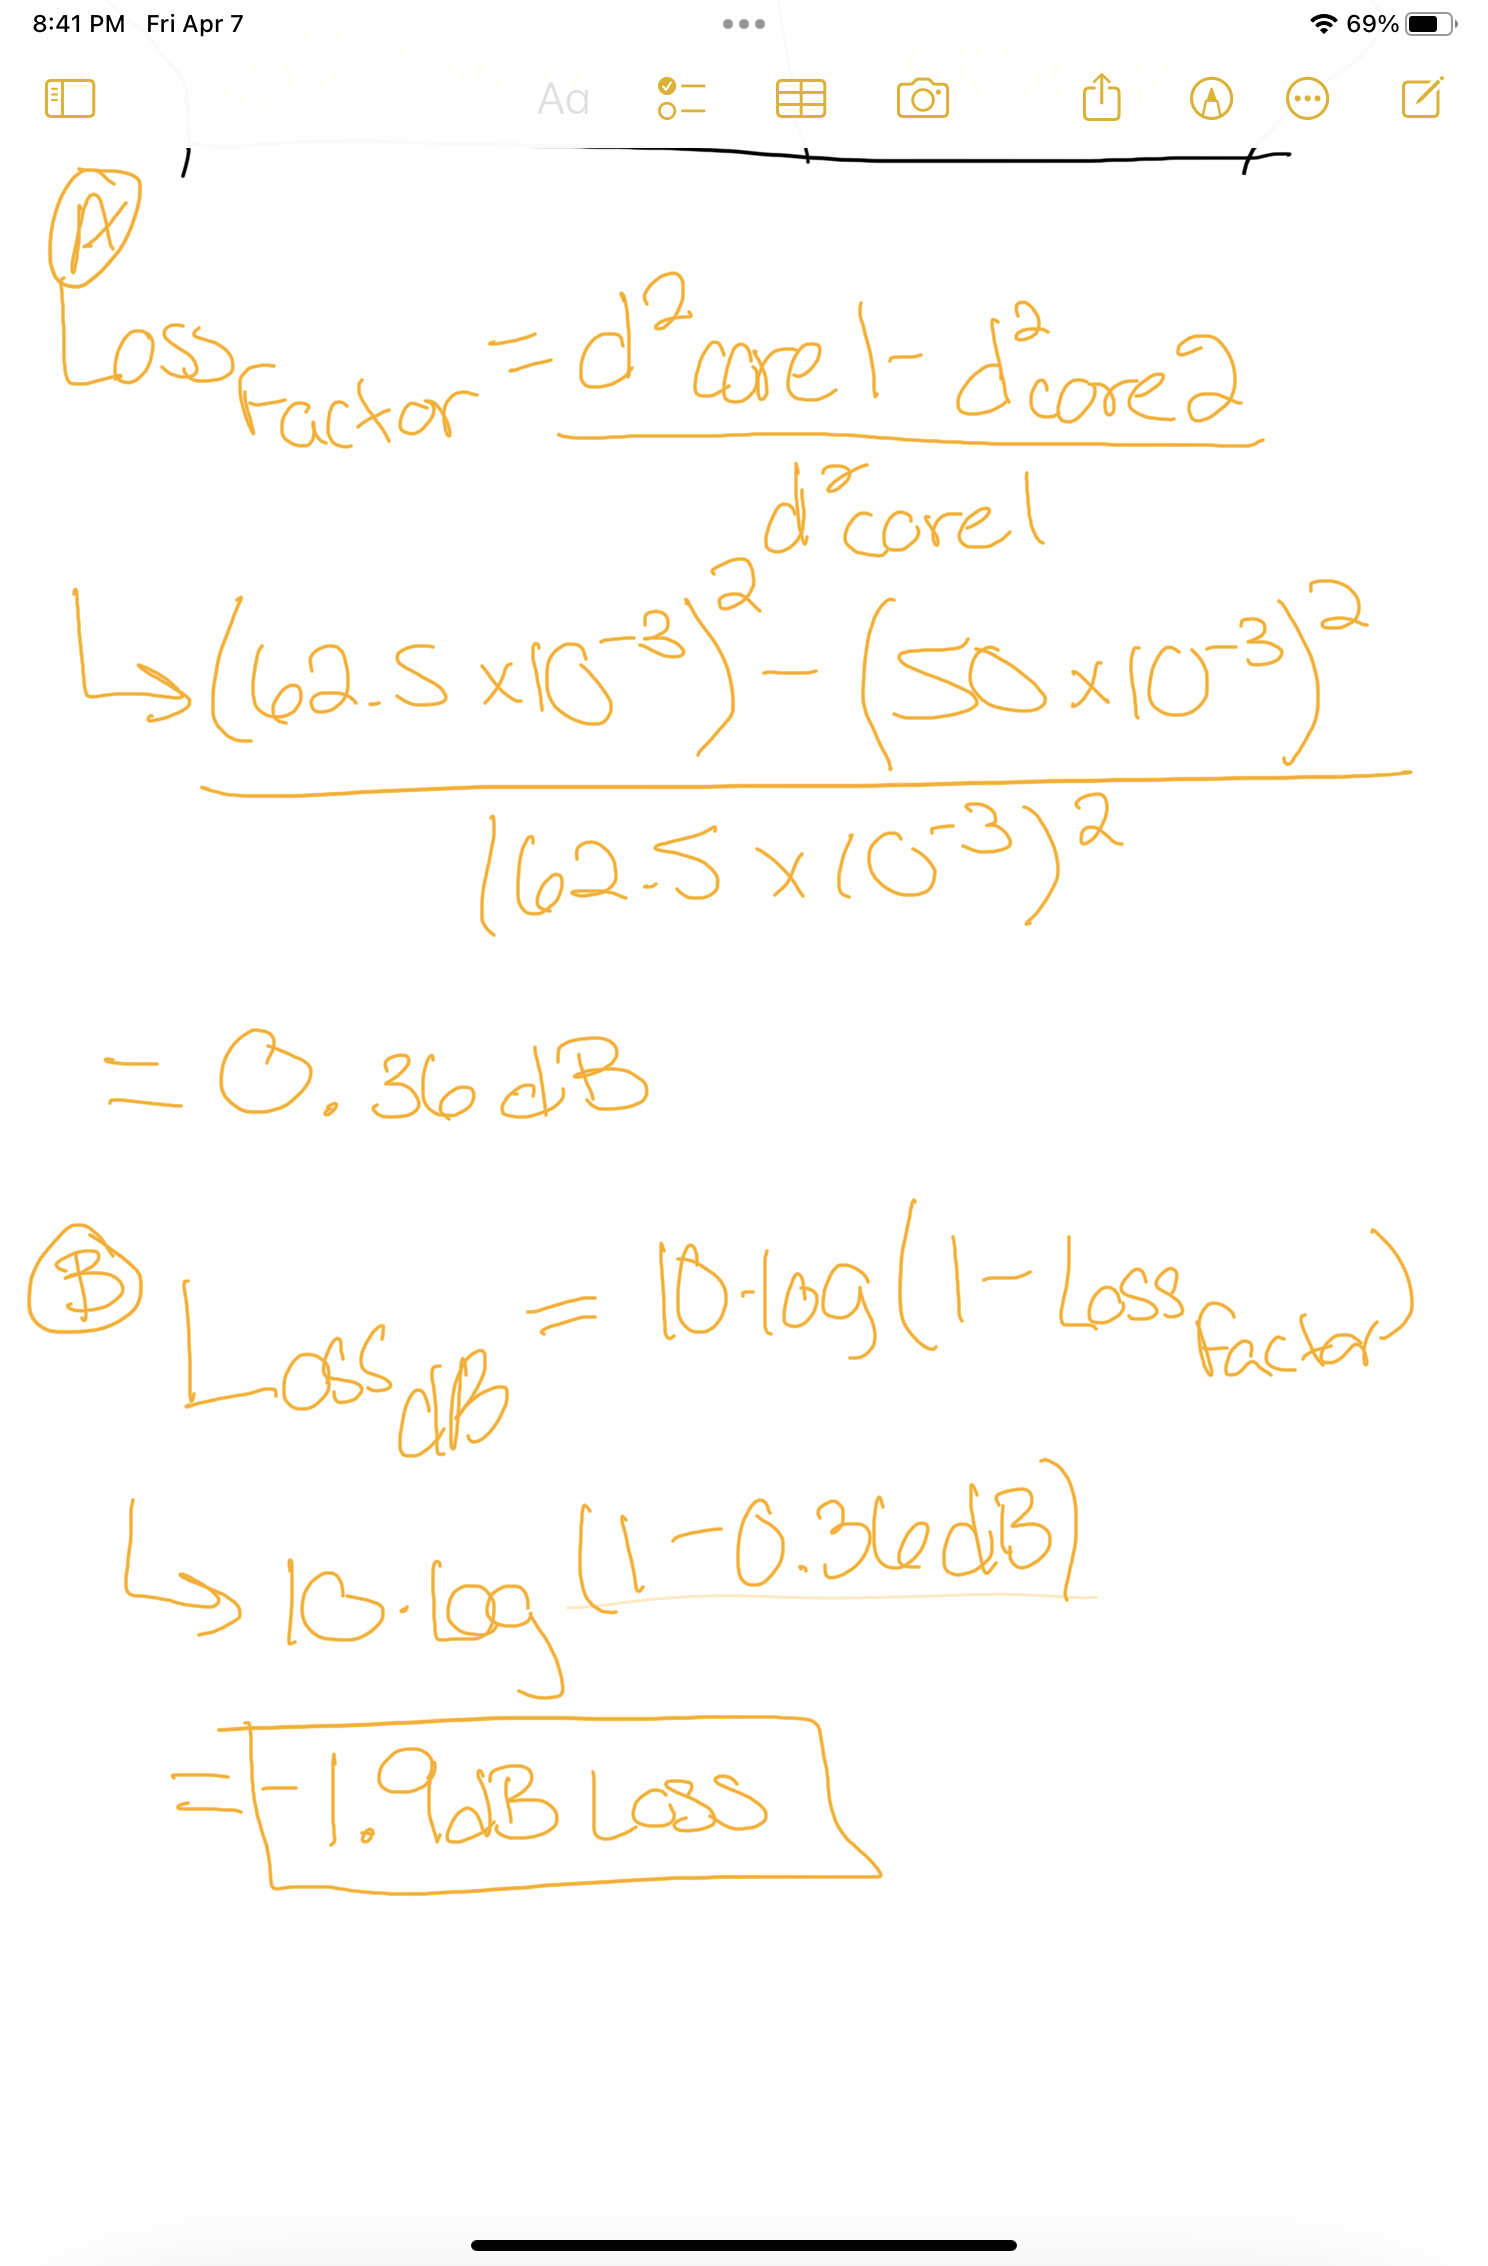 8:41 PM Fri Apr 7 69%
Aa
A
Loss Factor = d² core1 - d² core2
d² core1
(62.5 x10⁻³)² - (50 x10⁻³)²
(62.5 x10⁻³)²
= 0.36dB
B
Loss dB = 10·log(1 - Loss Factor)
10·log (1 - 0.36dB)
= -1.9dB Loss